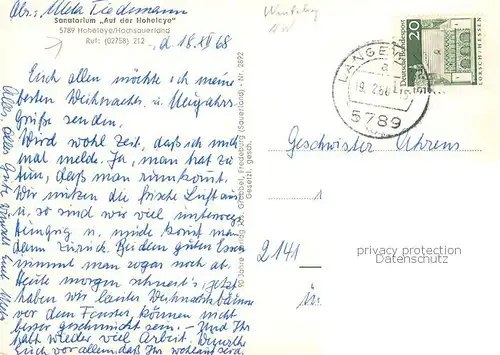 Abs.: Meta Tiedemann
Sanatorium „Auf der Hoheleye"
5789 Hoheleye/Hochsauerland
Ruf: (02758) 212
, d. 18.XII 68
Euch allen möchte ich meine
besten Weihnachts- u. Neujahrs-
Grüße senden.
Wird wohl Zeit, daß ich mich
mal melde. Ja, man hat zu
tun, daß man rumkommt.
Wir nutzen die frische Luft aus
u. so sind wir viel unterwegs.
Hungrig u. müde kommt man
dann zurück. Bei dem guten Essen
nimmt man sogar noch ab.
Heute morgen schneit's, jetzt
haben wir lauter Weihnachtsbäume
vor dem Fenster, können nicht
besser geschmückt sein. – Und Ihr
habt wieder viel Arbeit. Wünsche
Euch vor allem, daß Ihr wohlauf seid.
Alles, alles Gute wünscht Euch Meta
90 Jahre Verlag Jos. Grobbel, Fredeburg (Sauerland) - Nr. 2892
Gesetzl. gesch.
19.12.68
5789
20
Deutsche Bundespost
LORSCH/HESSEN
Geschwister Ahrens
1
2141
privacy protection
DANISCHWORLD
in